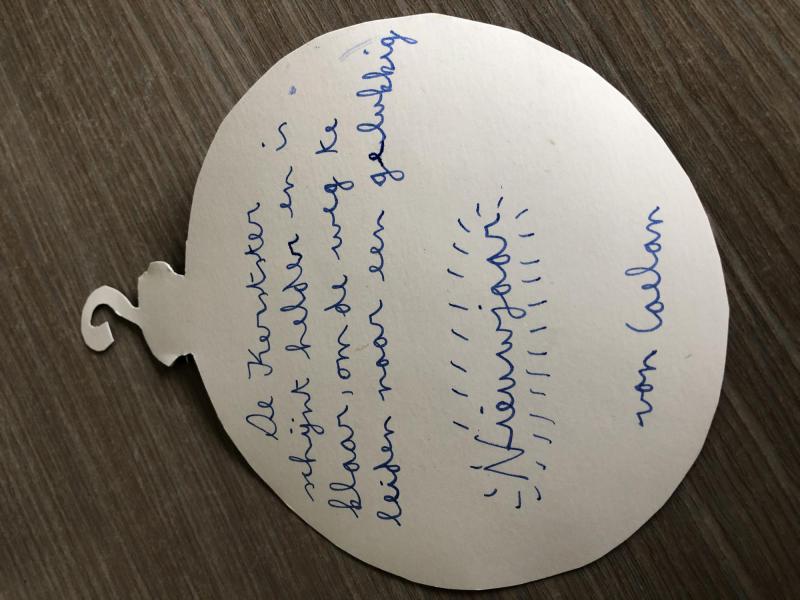 De Kerstster
schijnt helder en is
klaar, om de weg te
leiden naar een gelukkig
Nieuwjaar
van Caelan